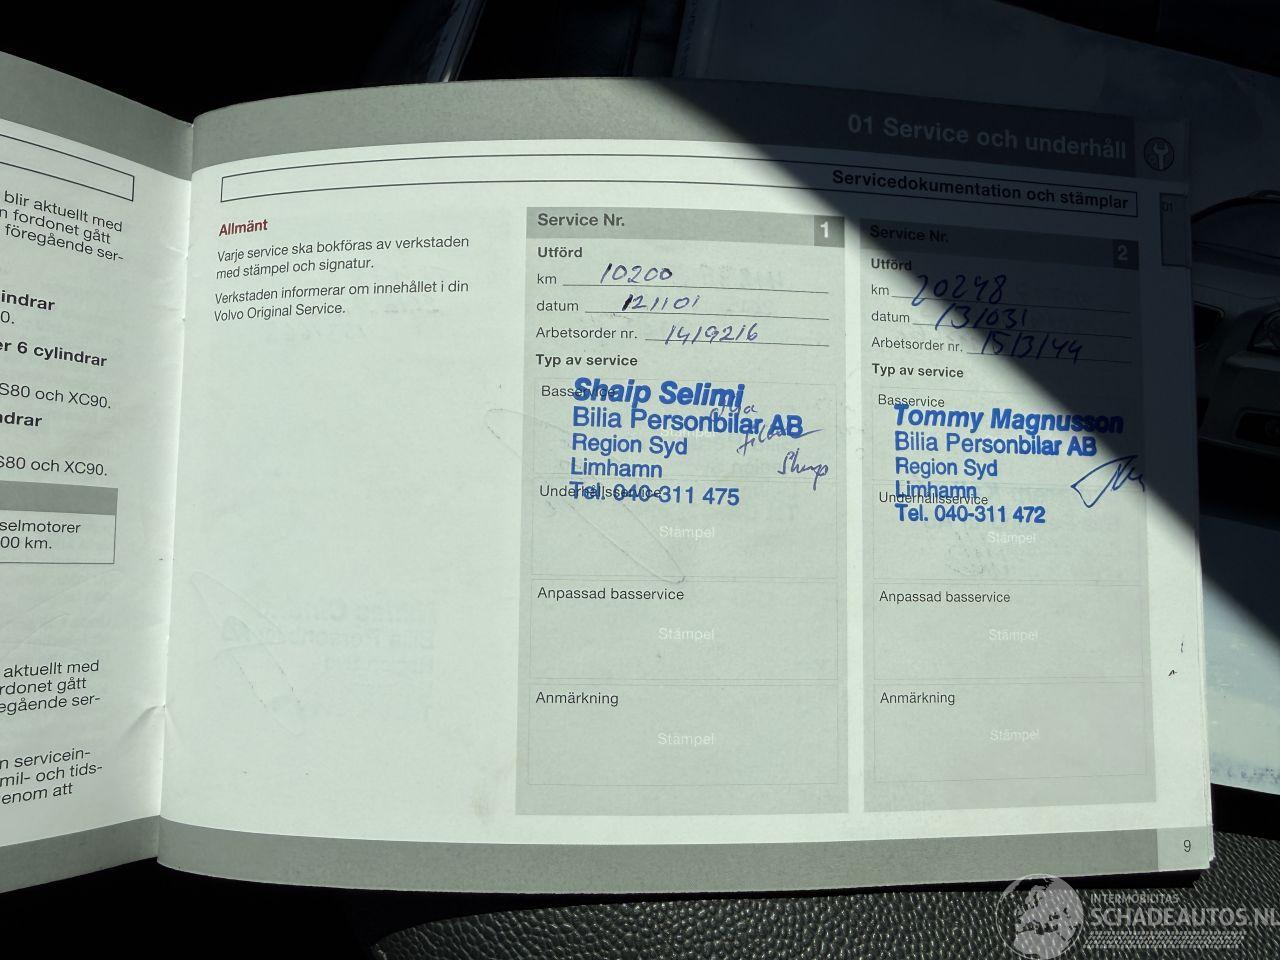 blir aktuellt med
n fordonet gått
föregående ser-
indrar
0.
er 6 cylindrar
S80 och XC90.
ndrar
S80 och XC90.
selmotorer
00 km.
aktuellt med
rdonet gått
egående ser-
n servicein-
mil- och tids-
enom att
01 Service och underhåll
Servicedokumentation och stämplar
01
Allmänt
Varje service ska bokföras av verkstaden
med stämpel och signatur.
Verkstaden informerar om innehållet i din
Volvo Original Service.
Service Nr. 1
Utförd
km 10200
datum 121101
Arbetsorder nr. 1419216
Typ av service
Basservice
Shaip Selimi
Bilia Personbilar AB
Region Syd
Limhamn
Tel. 040-311 475
Underhållsservice
Stämpel
Anpassad basservice
Stämpel
Anmärkning
Stämpel
Service Nr. 2
Utförd
km 20248
datum 131031
Arbetsorder nr. 1513144
Typ av service
Basservice
Tommy Magnusson
Bilia Personbilar AB
Region Syd
Limhamn
Tel. 040-311 472
Underhållsservice
Stämpel
Anpassad basservice
Stämpel
Anmärkning
Stämpel
9
INTERMOBILITAS
SCHADEAUTOS.NL